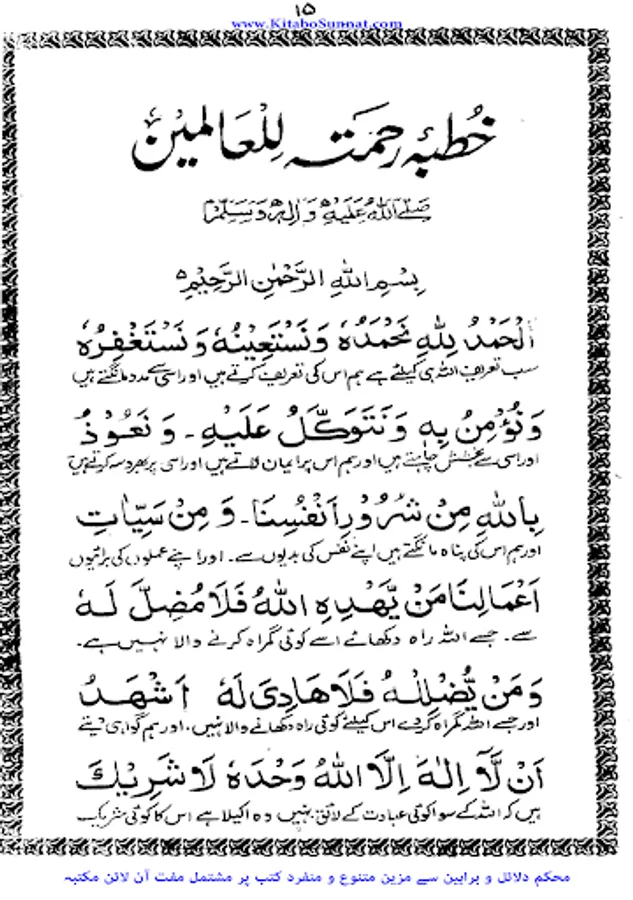 ۱۵
www.KitaboSunnat.com
خُطبۂ رحمتہ لِلْعَالمِیْن
صَلَّے اللہُ عَلَیْہِ وَاٰلِہٖ وَسَلَّمْ
بِسْمِ اللهِ الرَّحْمٰنِ الرَّحِيْمِ
اَلْحَمْدُ لِلّٰهِ نَحْمَدُهٗ وَنَسْتَعِيْنُهٗ وَنَسْتَغْفِرُهٗ
سب تعریف اللہ ہی کیلئے ہے ہم اس کی تعریف کرتے ہیں اور اسی سے مدد مانگتے ہیں
وَنُؤْمِنُ بِهٖ وَنَتَوَكَّلُ عَلَيْهِ ۔ وَنَعُوْذُ
اور اسی سے بخشش چاہتے ہیں اور ہم اس پر ایمان لاتے ہیں اور اسی پر بھروسہ کرتے ہیں
بِاللهِ مِنْ شُرُوْرِ اَنْفُسِنَا ۔ وَمِنْ سَيِّاٰتِ
اور ہم اس کی پناہ مانگتے ہیں اپنے نفس کی بدیوں سے۔ اور اپنے عملوں کی برائیوں
اَعْمَالِنَا مَنْ يَّهْدِهِ اللهُ فَلَا مُضِلَّ لَهٗ
سے۔ جسے اللہ راہ دکھائے اسے کوئی گمراہ کرنے والا نہیں ہے۔
وَمَنْ يُّضْلِلْهُ فَلَا هَادِیَ لَهٗ اَشْهَدُ
اور جسے اللہ گمراہ کردے اس کیلئے کوئی راہ دکھانے والا نہیں۔ اور ہم گواہی دیتے
اَنْ لَّآ اِلٰهَ اِلَّا اللهُ وَحْدَهٗ لَا شَرِيْكَ
ہیں کہ اللہ کے سوا کوئی عبادت کے لائق نہیں وہ اکیلا ہے اس کا کوئی شریک
محکم دلائل و براہین سے مزین متنوع و منفرد کتب پر مشتمل مفت آن لائن مکتبہ